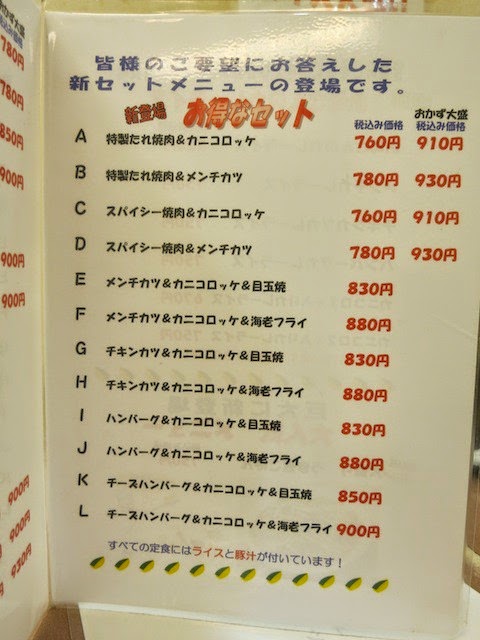 おかず大盛
税込み価格
780円
780円
850円
900円
900円
900円
900円
900円
930円
皆様のご要望にお答えした
新セットメニューの登場です。
新登場 お得なセット
税込み価格 おかず大盛 税込み価格
A 特製たれ焼肉&カニコロッケ 760円 910円
B 特製たれ焼肉&メンチカツ 780円 930円
C スパイシー焼肉&カニコロッケ 760円 910円
D スパイシー焼肉&メンチカツ 780円 930円
E メンチカツ&カニコロッケ&目玉焼 830円
F メンチカツ&カニコロッケ&海老フライ 880円
G チキンカツ&カニコロッケ&目玉焼 830円
H チキンカツ&カニコロッケ&海老フライ 880円
I ハンバーグ&カニコロッケ&目玉焼 830円
J ハンバーグ&カニコロッケ&海老フライ 880円
K チーズハンバーグ&カニコロッケ&目玉焼 850円
L チーズハンバーグ&カニコロッケ&海老フライ 900円
すべての定食にはライスと豚汁が付いています!